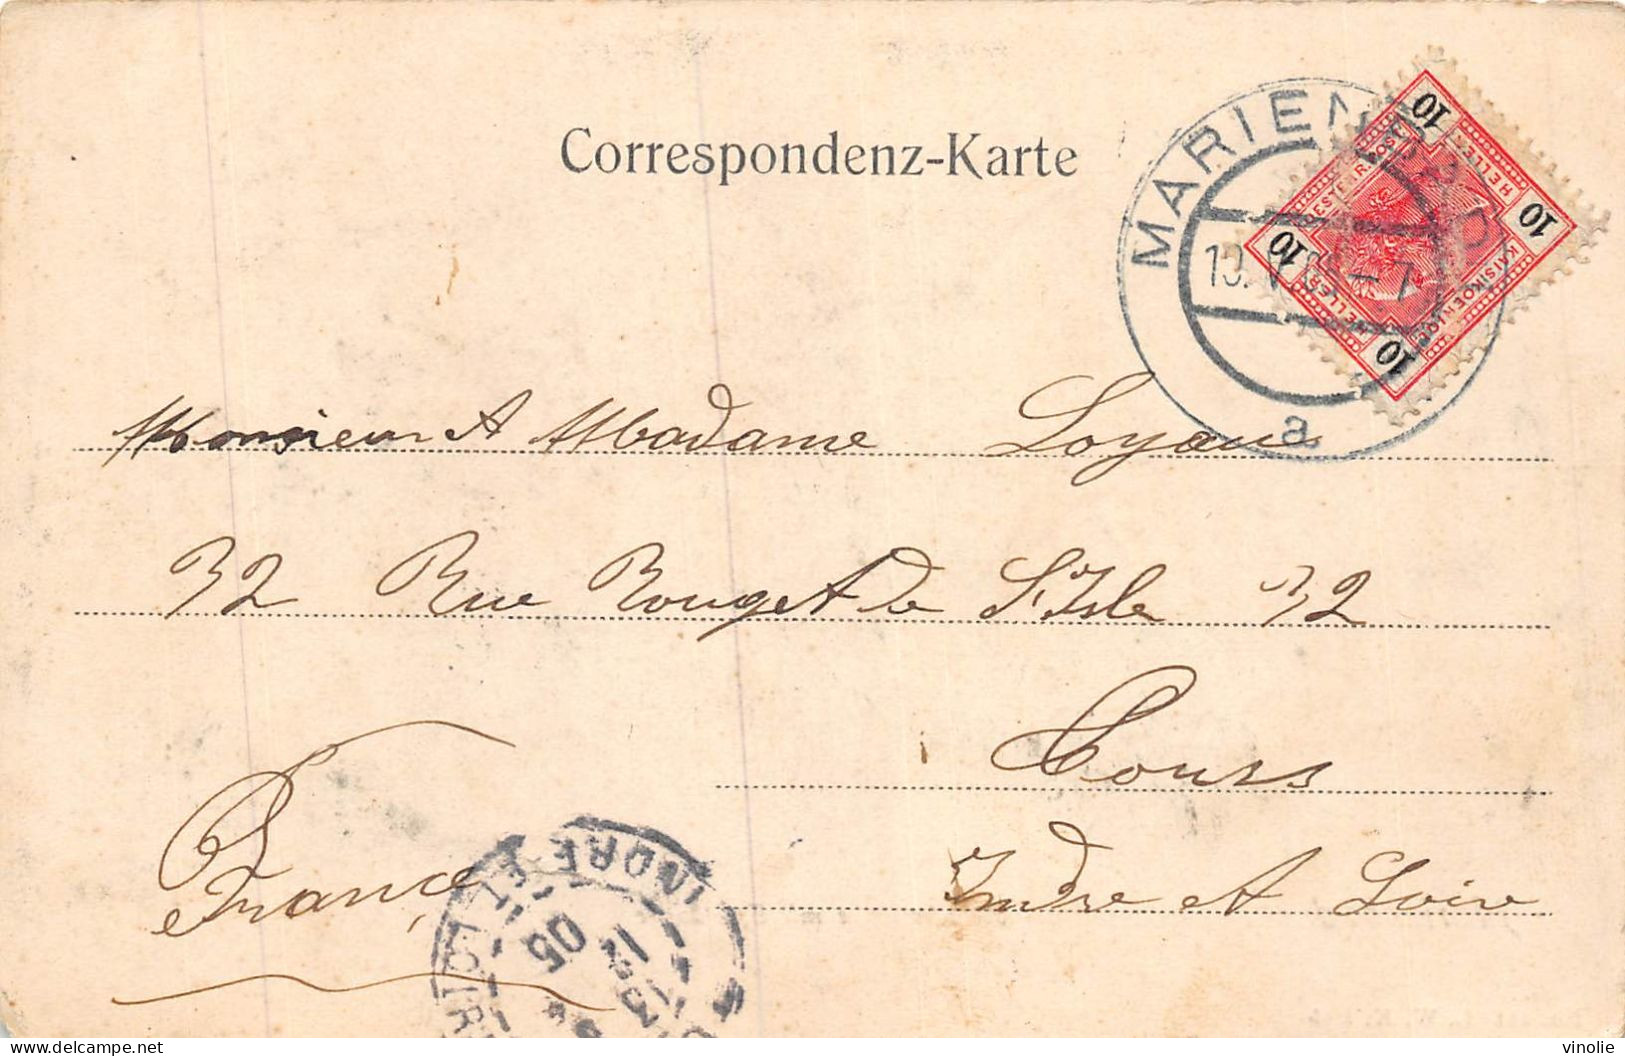 Correspondenz-Karte
MARIENBAD
a.
10 10 10 10
KAIS.KOENIGL.
OESTERR.POST
HELLER HELLER
Monsieur et Madame Loyau
32 Rue Rouget de L'Isle 32
Tours
Indre et Loire
France
INDRE-ET-LOIRE
05
delcampe.net
vinolie